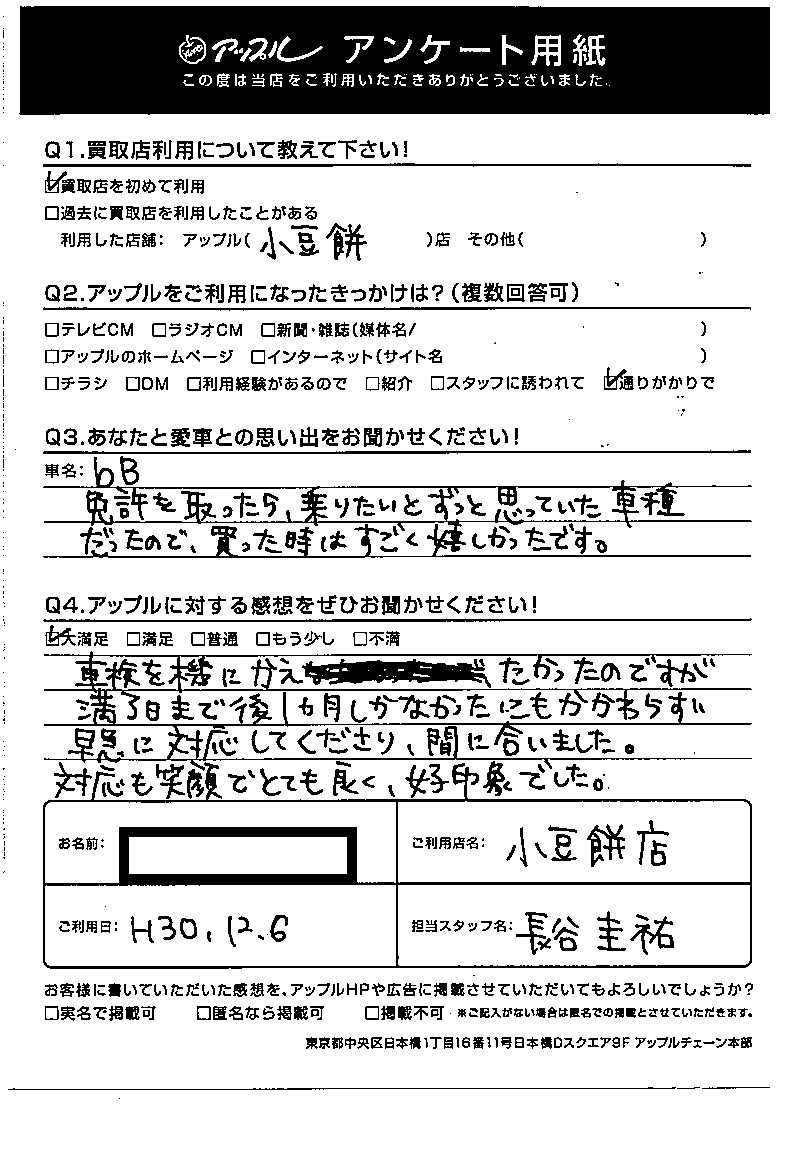 アップル アンケート用紙
この度は当店をご利用いただきありがとうございました。
Q1.買取店利用について教えて下さい!
☑買取店を初めて利用
□過去に買取店を利用したことがある
利用した店舗: アップル( 小豆餅 )店 その他( )
Q2.アップルをご利用になったきっかけは?(複数回答可)
□テレビCM □ラジオCM □新聞・雑誌(媒体名/ )
□アップルのホームページ □インターネット(サイト名 )
□チラシ □DM □利用経験があるので □紹介 □スタッフに誘われて ☑通りがかりで
Q3.あなたと愛車との思い出をお聞かせください!
車名: bB
免許を取ったら、乗りたいとずっと思っていた車種
だったので、買った時はすごく嬉しかったです。
Q4.アップルに対する感想をぜひお聞かせください!
☑大満足 □満足 □普通 □もう少し □不満
車検を機にかえたかったのですが
満了日まで後1ヵ月しかなかったにもかかわらず
早急に対応してくださり、間に合いました。
対応も笑顔でとても良く、好印象でした。
お名前: ご利用店名: 小豆餅店
ご利用日: H30.12.6 担当スタッフ名: 長谷圭祐
お客様に書いていただいた感想を、アップルHPや広告に掲載させていただいてもよろしいでしょうか?
□実名で掲載可 □匿名なら掲載可 □掲載不可 ※ご記入がない場合は匿名での掲載とさせていただきます。
東京都中央区日本橋1丁目16番11号日本橋Dスクエア9F アップルチェーン本部